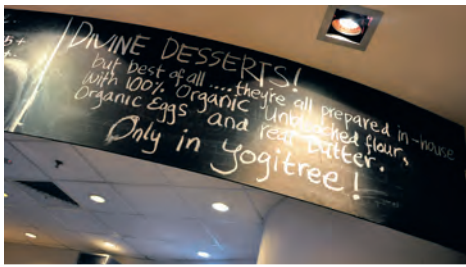 5+
DIVINE DESSERTS!
but best of all ....they're all prepared in-house
with 100% Organic Unbleached flour,
Organic Eggs and real butter.
Only in Yogitree!